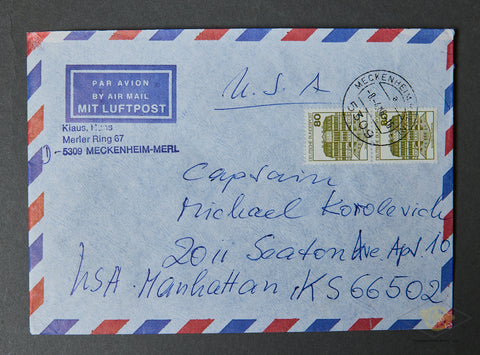 PAR AVION
BY AIR MAIL
MIT LUFTPOST
U.S.A
Klaus, Hans
Merler Ring 67
5309 MECKENHEIM-MERL
MECKENHEIM
5309
80
Captain
Michael Korolevich
2011 Seaton Ave Apt 10
USA Manhattan KS 66502